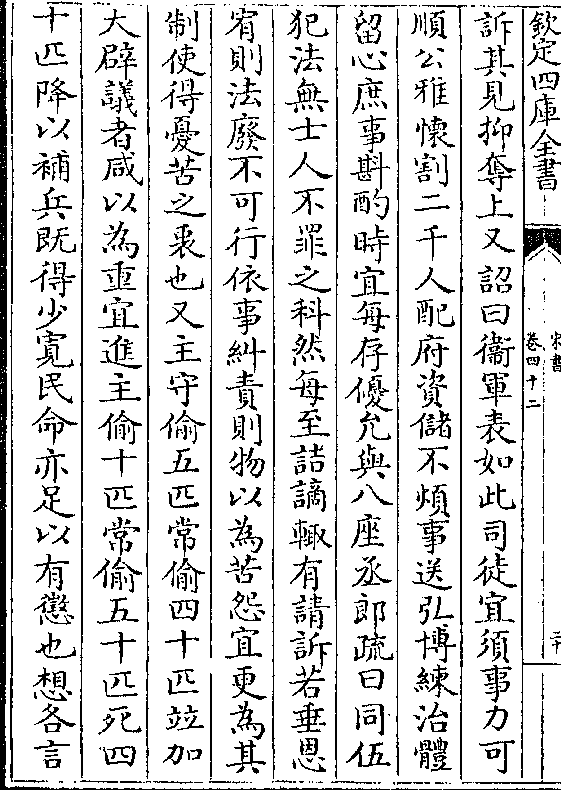 欽定四庫全書
宋書
卷四十二
二十
訴其見抑奪上又詔曰衞軍表如此司徒宜須事力可
順公雅懷割二千人配府資儲不煩事送弘博練治體
留心庶事斟酌時宜每存優允與八座丞郎疏曰同伍
犯法無士人不罪之科然每至詰謫輙有請訴若垂恩
宥則法廢不可行依事糾責則物以為苦怨宜更為其
制使得憂苦之衷也又主守偷五匹常偷四十匹竝加
大辟議者咸以為重宜進主偷十匹常偷五十匹死四
十匹降以補兵既得少寛民命亦足以有懲也想各言